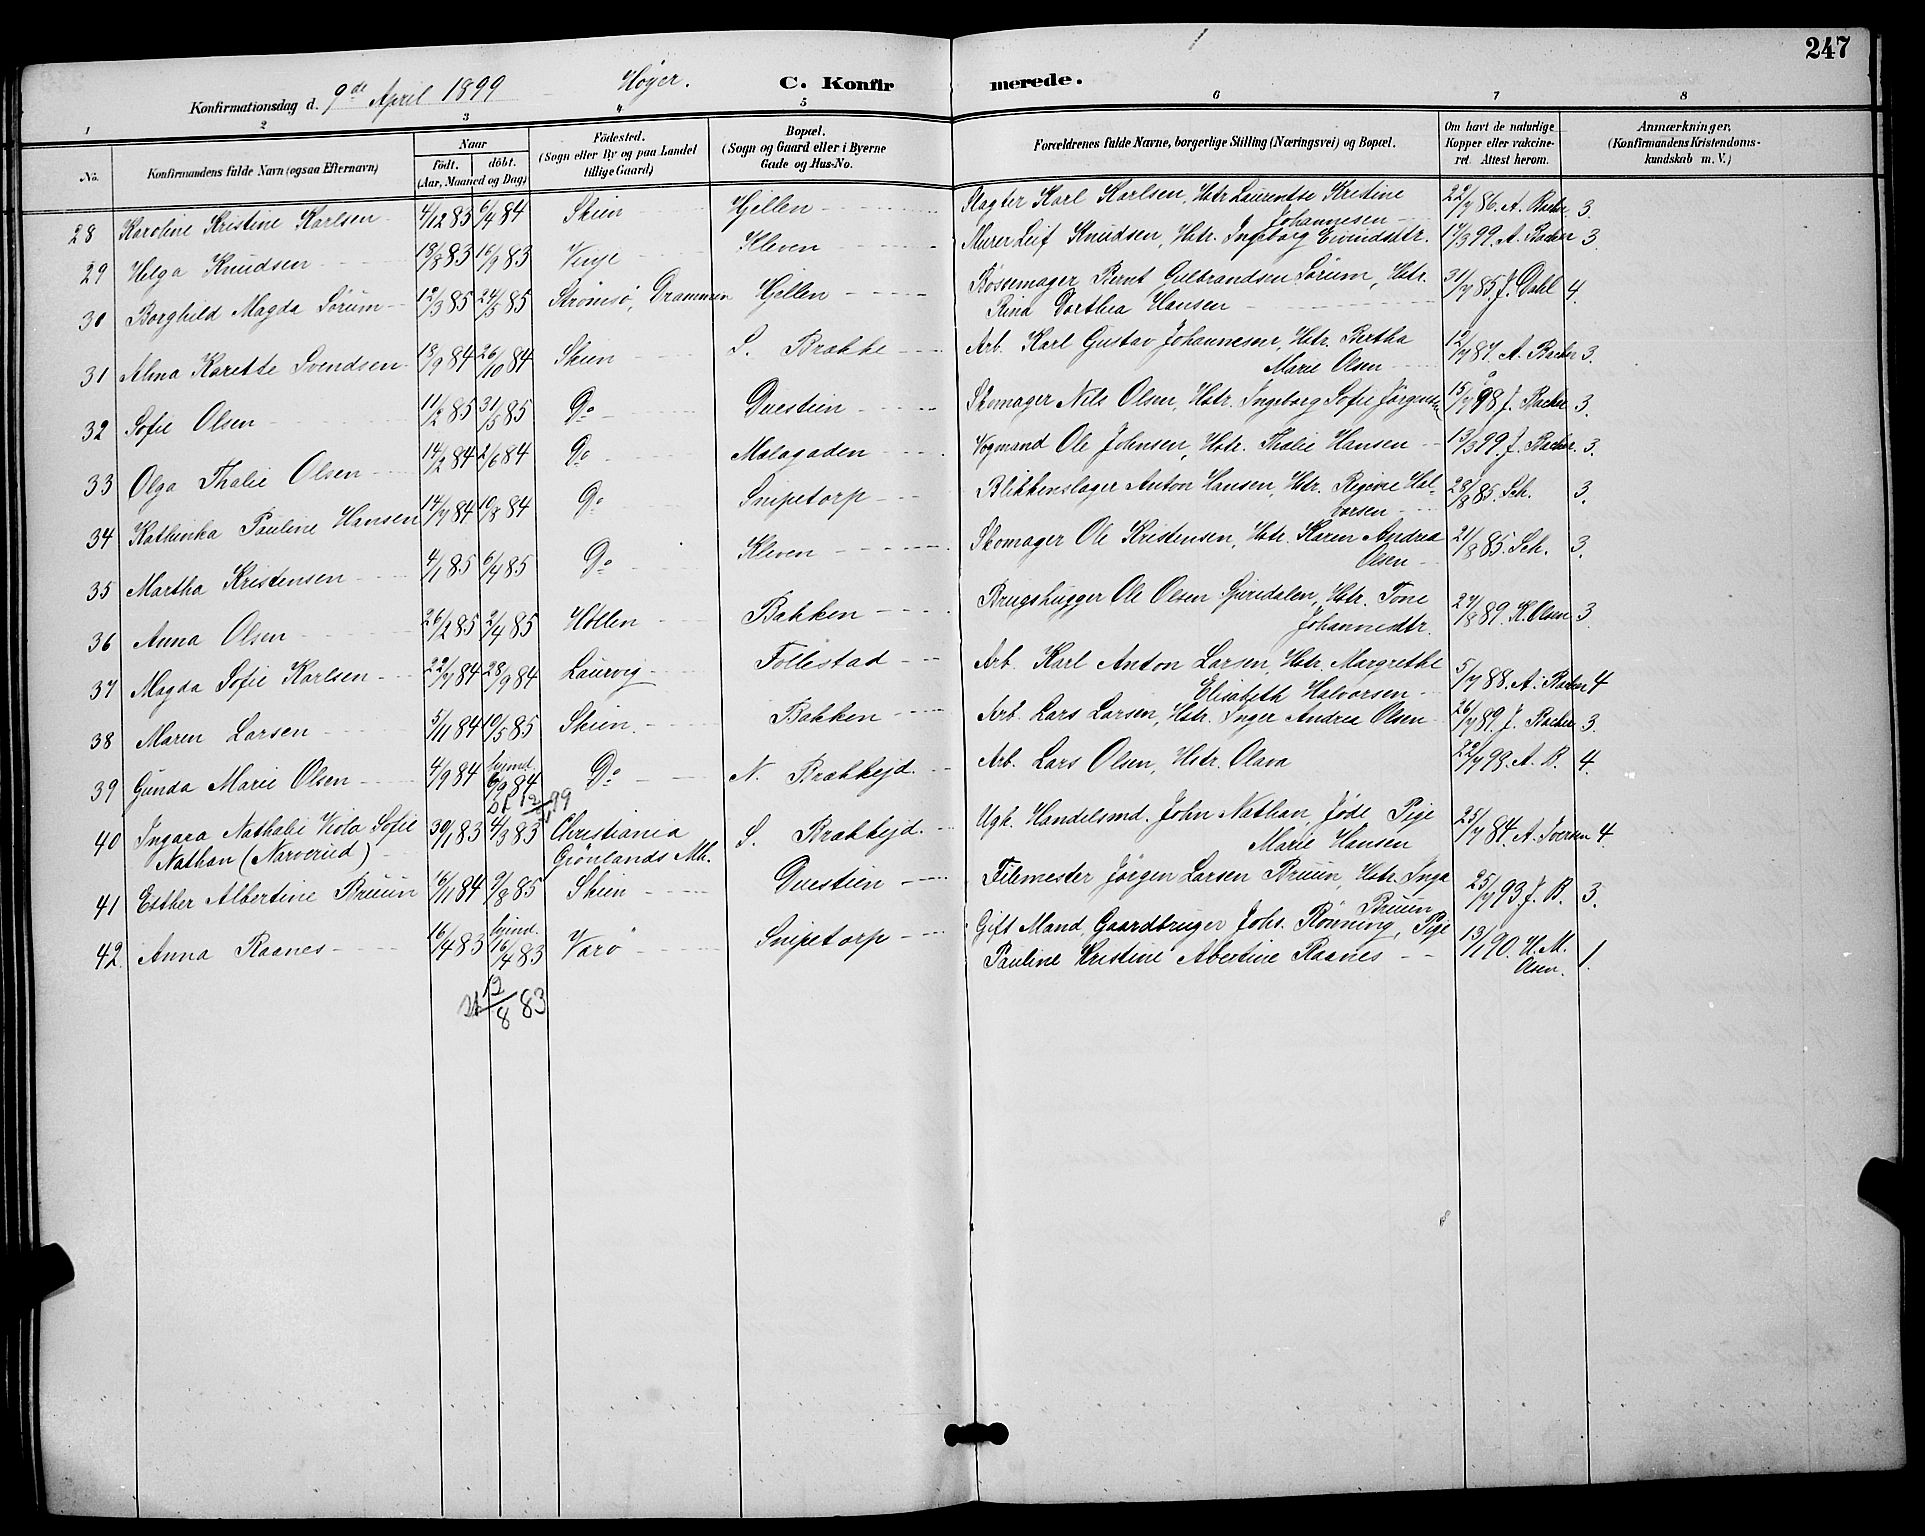 247
Konfirmationsdag d. 9de April 1899 Høyer. C. Konfirmerede.
1 2 3 4 5 6 7 8
No. Konfirmandens fulde Navn (ogsaa Efternavn) Naar Født. døbt. (Aar, Maaned og Dag) Fødested. (Sogn eller By og paa Landet tillige Gaard) Bopæl. (Sogn og Gaard eller i Byerne Gade og Hus-No. Forældrenes fulde Navne, borgerlige Stilling (Næringsvei) og Bopæl. Om havt de naturlige Kopper eller vakcineret. Attest herom. Anmærkninger. (Konfirmandens Kristendomskundskab m. V.)
28 Karoline Kristine Karlsen 4/12 83 6/4 84 Skien Hjellen Slagter Karl Karlsen, Hstr. Laurentse Kristine Johannesen 22/7 86. A. Backer 3.
29 Helga Knudsen 13/8 83 16/9 83 Vinje Kleven Murer Leif Knudsen, Hstr. Ingeborg Eivindsdtr. 17/3 99. A. Backer 3.
30 Borghild Magda Sørum 12/3 85 24/5 85 Strømsø, Drammen Hjellen Bøssemager Bernt Gulbrandsen Sørum, Hstr. Rina Dorthea Hansen 31/7 85 J. Dahl 4.
31 Alma Karette Svendsen 13/9 84 26/10 84 Skien S. Brække Arb. Karl Gustav Johannesen, Hstr. Bertha Marie Olsen 12/7 87. A. Backer 3.
32 Sofie Olsen 11/2 85 31/5 85 Do Duestien Skomager Nils Olsen, Hstr. Ingeborg Sofie Jørgensdtr 15/7 98. J. Backer 3.
33 Olga Thalie Olsen 14/2 84 2/6 84 Do Malagaden Vogmand Ole Johnsen, Hstr. Thalie Hansen 13/3 99. J. Backer. 3.
34 Kathinka Pauline Hansen 14/7 84 10/8 84 Do Snipetorp Blikkenslager Anton Hansen, Hstr. Regine Halvorsen 28/8 85. Sch. 3.
35 Martha Kristensen 4/1 85 6/4 85 Do Kleven Skomager Ole Kristensen, Hstr. Karen Andrea Olsen 21/8 85. Sch. 3.
36 Anna Olsen 26/12 85 2/4 85 Hollen Bakken Brugshugger Ole Olsen Spiredalen, Hstr. Tone Johannesdtr. 24/8 89. K. Olsen 3.
37 Magda Sofie Karlsen 22/7 84 28/9 84 Laurvig Follestad Arb. Karl Anton Larsen, Hstr. Margrethe Elisabeth Halvorsen 5/7 88. A. Backer 4
38 Maren Larsen 5/11 84 10/5 85 Skien Bakken Arb. Lars Larsen, Hstr. Inger Andrea Olsen 26/7 89. J. Backer 3.
39 Gunda Marie Olsen 4/9 84 hjmd. 6/9 84 Do N. Brækkejd. Arb. Lars Olsen, Hstr. Olava 22/7 98. A. B. 4.
40 Ingara Nathalie Viola Sofie Nathan (Narverud) 30/1 83 4/3 83 Christiania Grönlands Mh. S. Brækkejd. Ugk. Handelsmd. John Nathan, Jøde Pige Marie Hansen 25/7 84. A. Iversen 4
41 Esther Albertine Bruun 16/11 84 9/8 85 Skien Duestien Filemester Jørgen Larsen Bruun, Hstr. Inga Bruun 25/7 93. J. B. 3.
42. Anna Raanes 16/4 83 hjmd. 16/4 83 Varø Snipetorp Gift Mand, Gaardbruger Johs. Rönning, Pige Pauline Kristine Abertine Raanes 13/1 90. H. M. Olsen. 1.
st 12/8 83